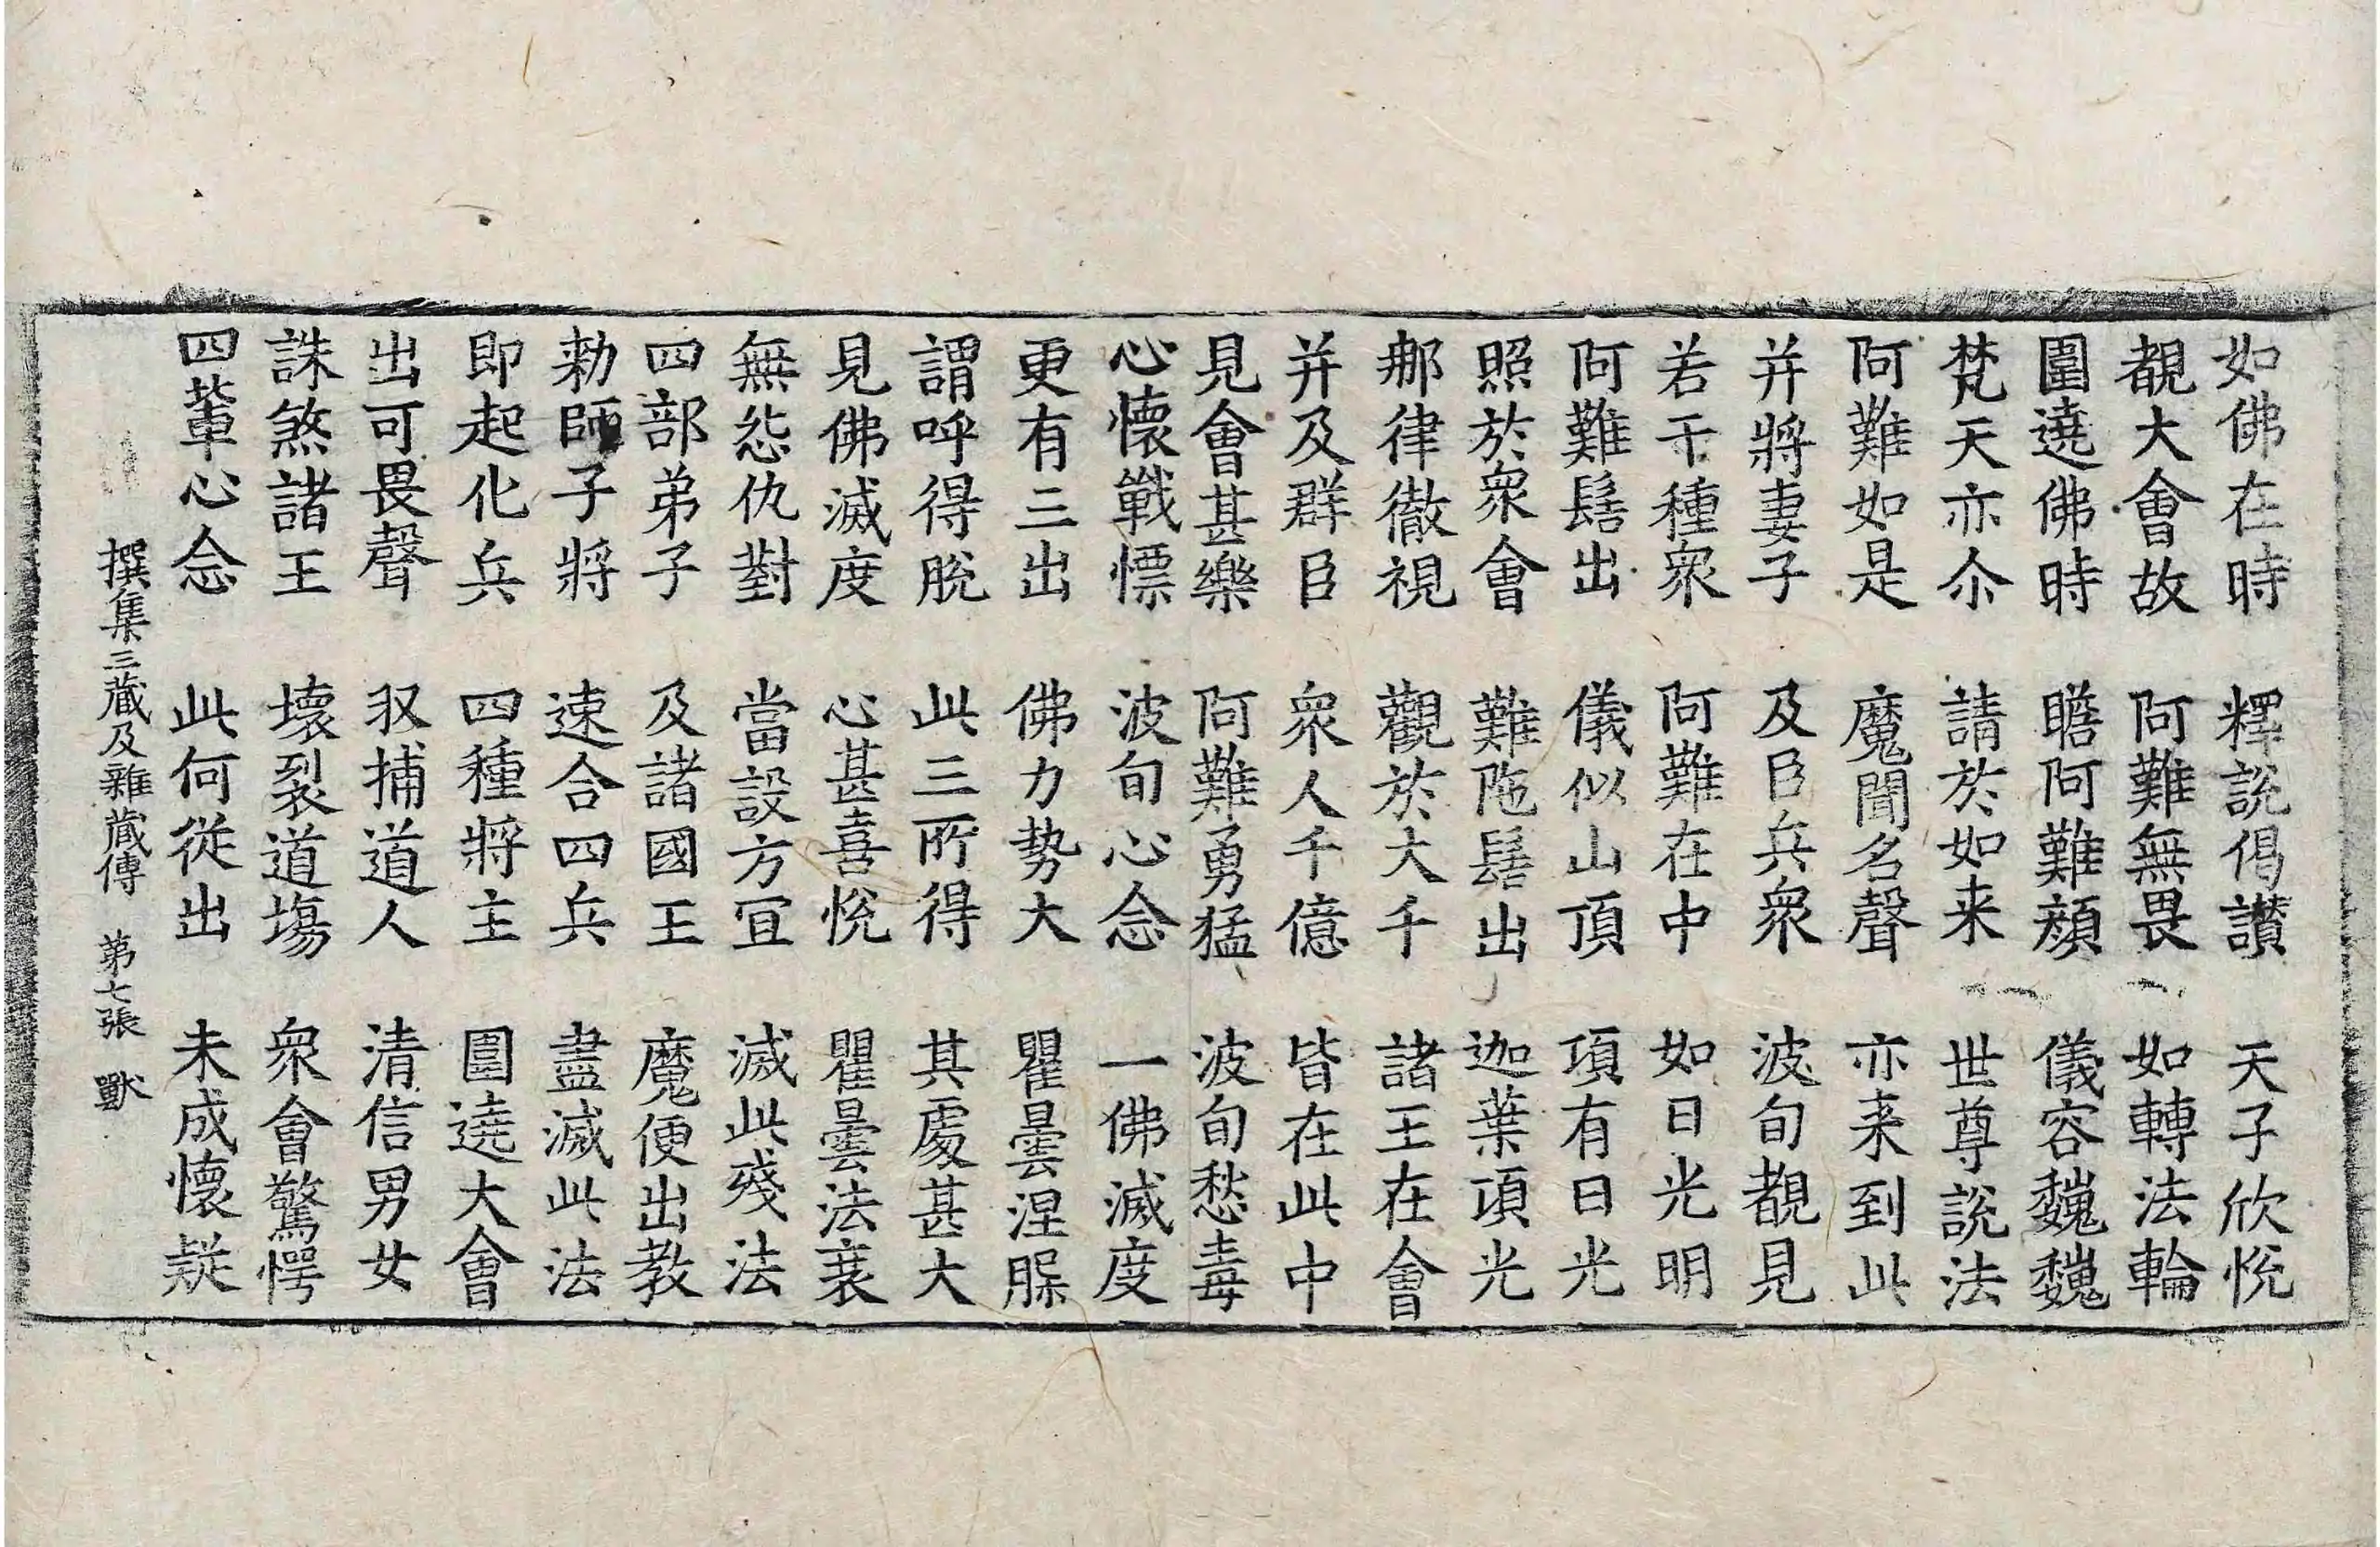 如佛在時　釋說偈讃　天子欣悅
覩大會故　阿難無畏　如轉法輪
圍遶佛時　瞻阿難顏　儀容巍巍
梵天亦尒　請於如来　世尊說法
阿難如是　魔聞名聲　亦来到此
并將妻子　及臣兵衆　波旬覩見
若干種衆　阿難在中　如日光明
阿難髻出　儀似山頂　項有日光
照於衆會　難陁髻出　迦葉項光
那律徹視　觀於大千　諸王在會
并及群臣　衆人千億　皆在此中
見會甚樂　阿難勇猛　波旬愁毒
心懷戰慓　波旬心念　一佛滅度
更有三出　佛力勢大　瞿曇涅脲
謂呼得脫　此三所得　其處甚大
見佛滅度　心甚喜悅　瞿曇法衰
無怨仇對　當設方冝　滅此殘法
四部弟子　及諸國王　魔便出教
勑師子將　速合四兵　盡滅此法
即起化兵　四種將主　圍遶大會
出可畏聲　収捕道人　清信男女
誅煞諸王　壞裂道場　衆會驚愕
四輩心念　此何從出　未成懷疑
撰集三藏及雜藏傳　第七張　獸